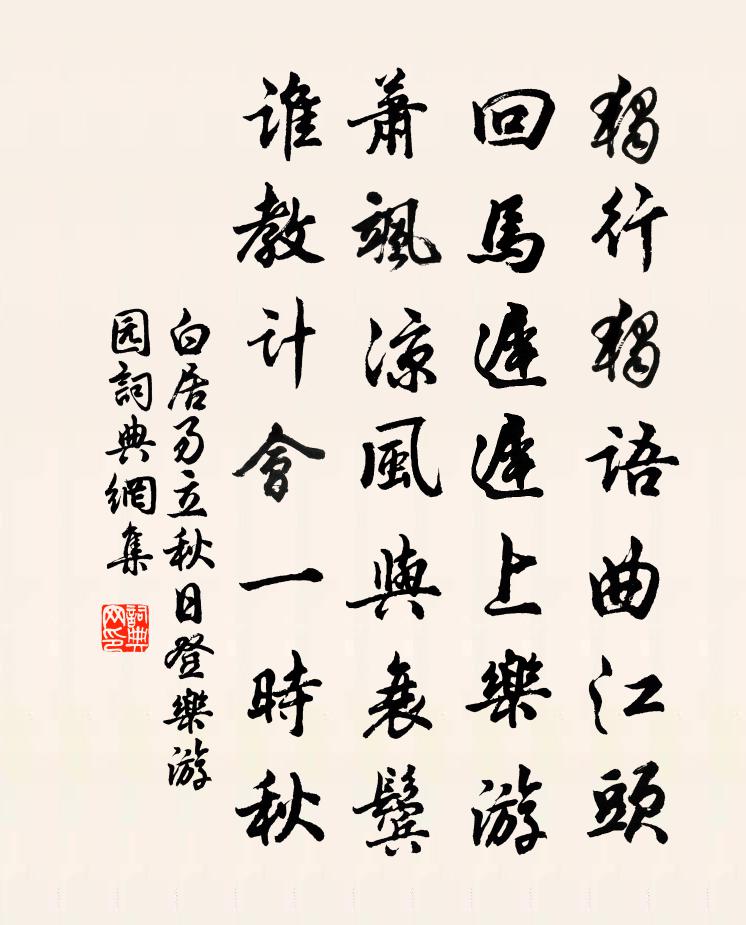 獨行獨語曲江頭
回馬遲遲上樂游
蕭颯涼風與衰鬢
誰教計會一時秋
白居易立秋日登樂游
园詞典網集
詞典
网印